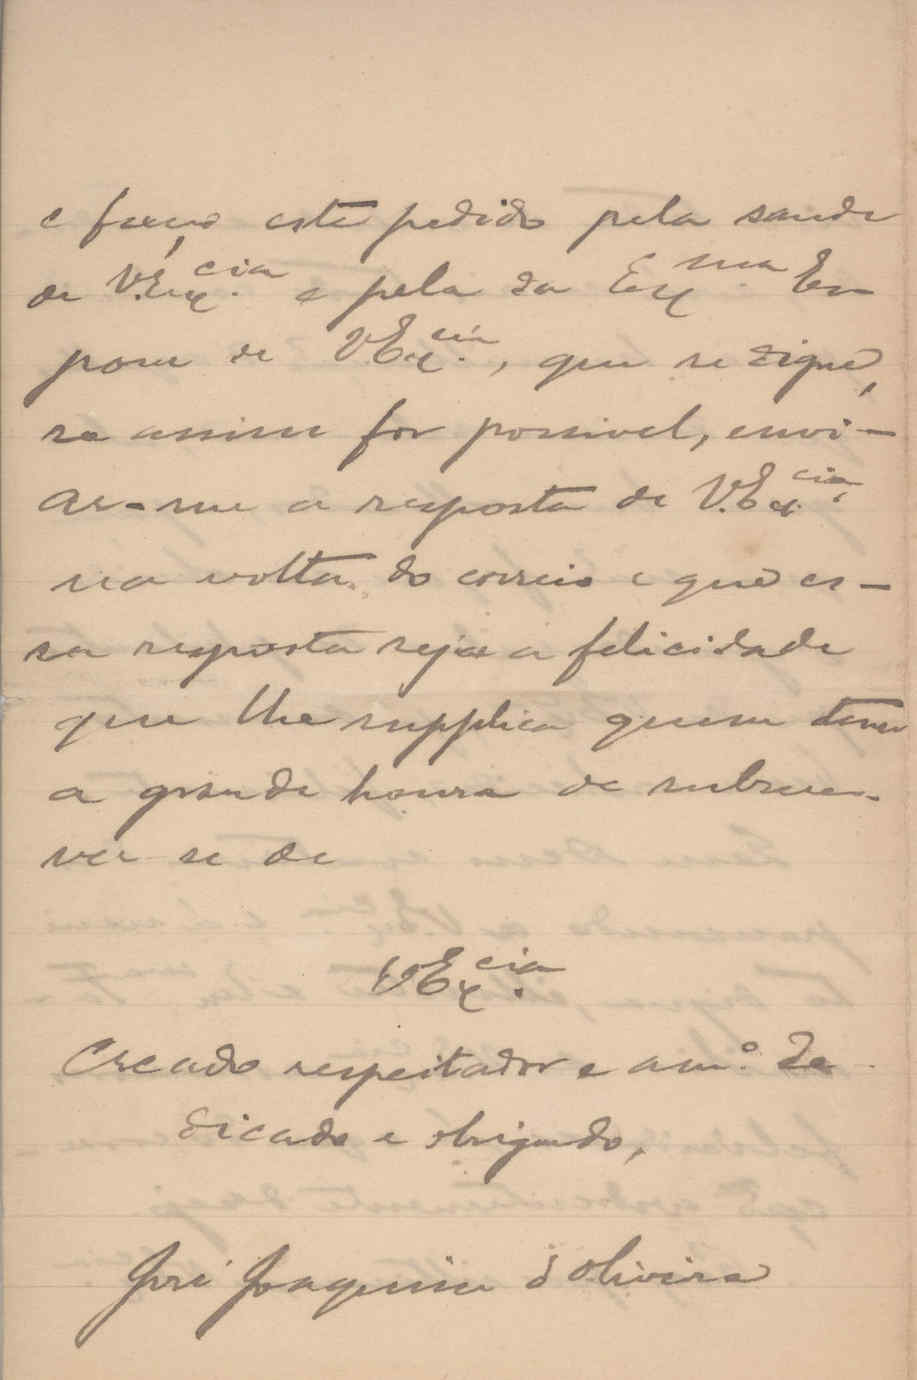 e faço este pedido pela saude
de V.Ex.cia e pela da Ex.ma Es
posa de V Ex.cia, que se digne,
se assim for possivel, envi-
ar-me a resposta de V.Ex.cia
na volta do correio e que es-
sa resposta seja a felicidade
que lhe supplica quem tem
a grande honra de subscre-
ver se de
V Ex.cia
Creado respeitador e am.º de
dicado e obrigado,
José Joaquim d'Oliveira